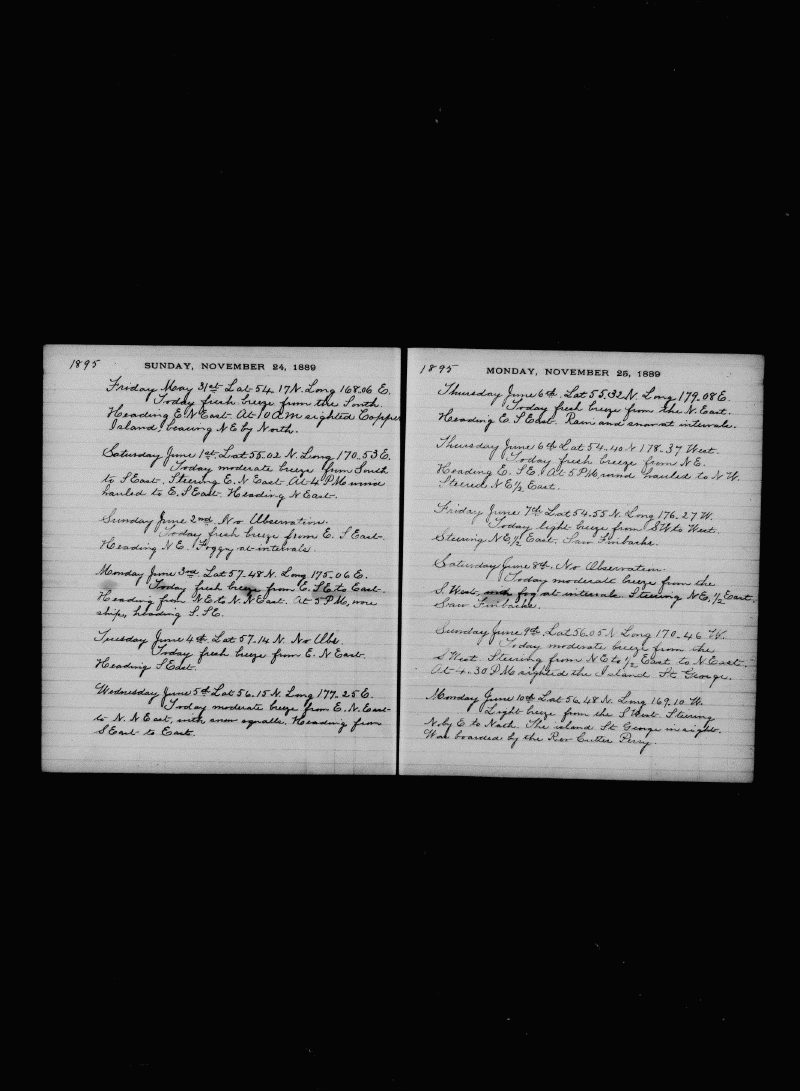 1895
SUNDAY, NOVEMBER 24, 1889
Friday May 31st Lat 54.17 N. Long 168.06 E.
Today fresh breeze from the South.
Heading E N East. At 10 A.M sighted Copper
Island, bearing NE by North.
Saturday June 1st Lat 55.02 N. Long 170.53 E.
Today moderate breeze from South
to S East. Steering E. N East. At 4 P.M wind
hauled to E. S East. Heading N East.
Sunday June 2nd No Observation.
Today fresh breeze from E. S East.
Heading N E. Foggy at intervals.
Monday June 3rd Lat 57-48 N. Long 175.06 E.
Today fresh breeze from E. SE to East.
Heading from NE to N. N East. At 5 P.M, wore
ship, heading S. SE.
Tuesday June 4th Lat 57.14 N. No Obs.
Today fresh breeze from E. N East.
Heading S East.
Wednesday June 5th Lat 56.15 N. Long 177.25 E.
Today moderate breeze from E. N. East
to N. N East, with snow squalls. Heading from
S East to East.
1895
MONDAY, NOVEMBER 25, 1889
Thursday June 6th. Lat 55.32 N. Long 179.08 E.
Today fresh breeze from the N. East.
Heading E. S East. Rain and snow at intervals.
Thursday June 6th Lat 54.40 N 178.37 West.
Today fresh breeze from N E.
Heading E. SE. At 5 P.M, wind hauled to N W.
Steered N E 1/2 East.
Friday June 7th Lat 54-55 N. Long 176.27 W.
Today light breeze from SW to West.
Steering NE 1/2 East. Saw Finbacks.
Saturday June 8th. No Observation.
Today moderate breeze from the
S. West, fog at intervals. Steering NE. 1/2 East.
Saw Finbacks.
Sunday June 9th. Lat 56.05 N Long 170-46 W.
Today moderate breeze from the
S West. Steering from N E to 1/2 East to N East.
At 4.30 P.M sighted the Island St. George.
Monday June 10th Lat 56.48 N. Long 169.10 W.
Light breeze from the S West. Steering
N. by E to North. The island St George in sight.
Was boarded by the Rev Cutter Perry.